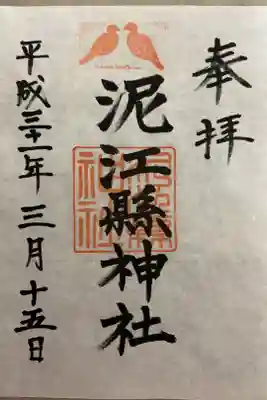 奉拝
泥江縣神社
平成三十一年三月十五日